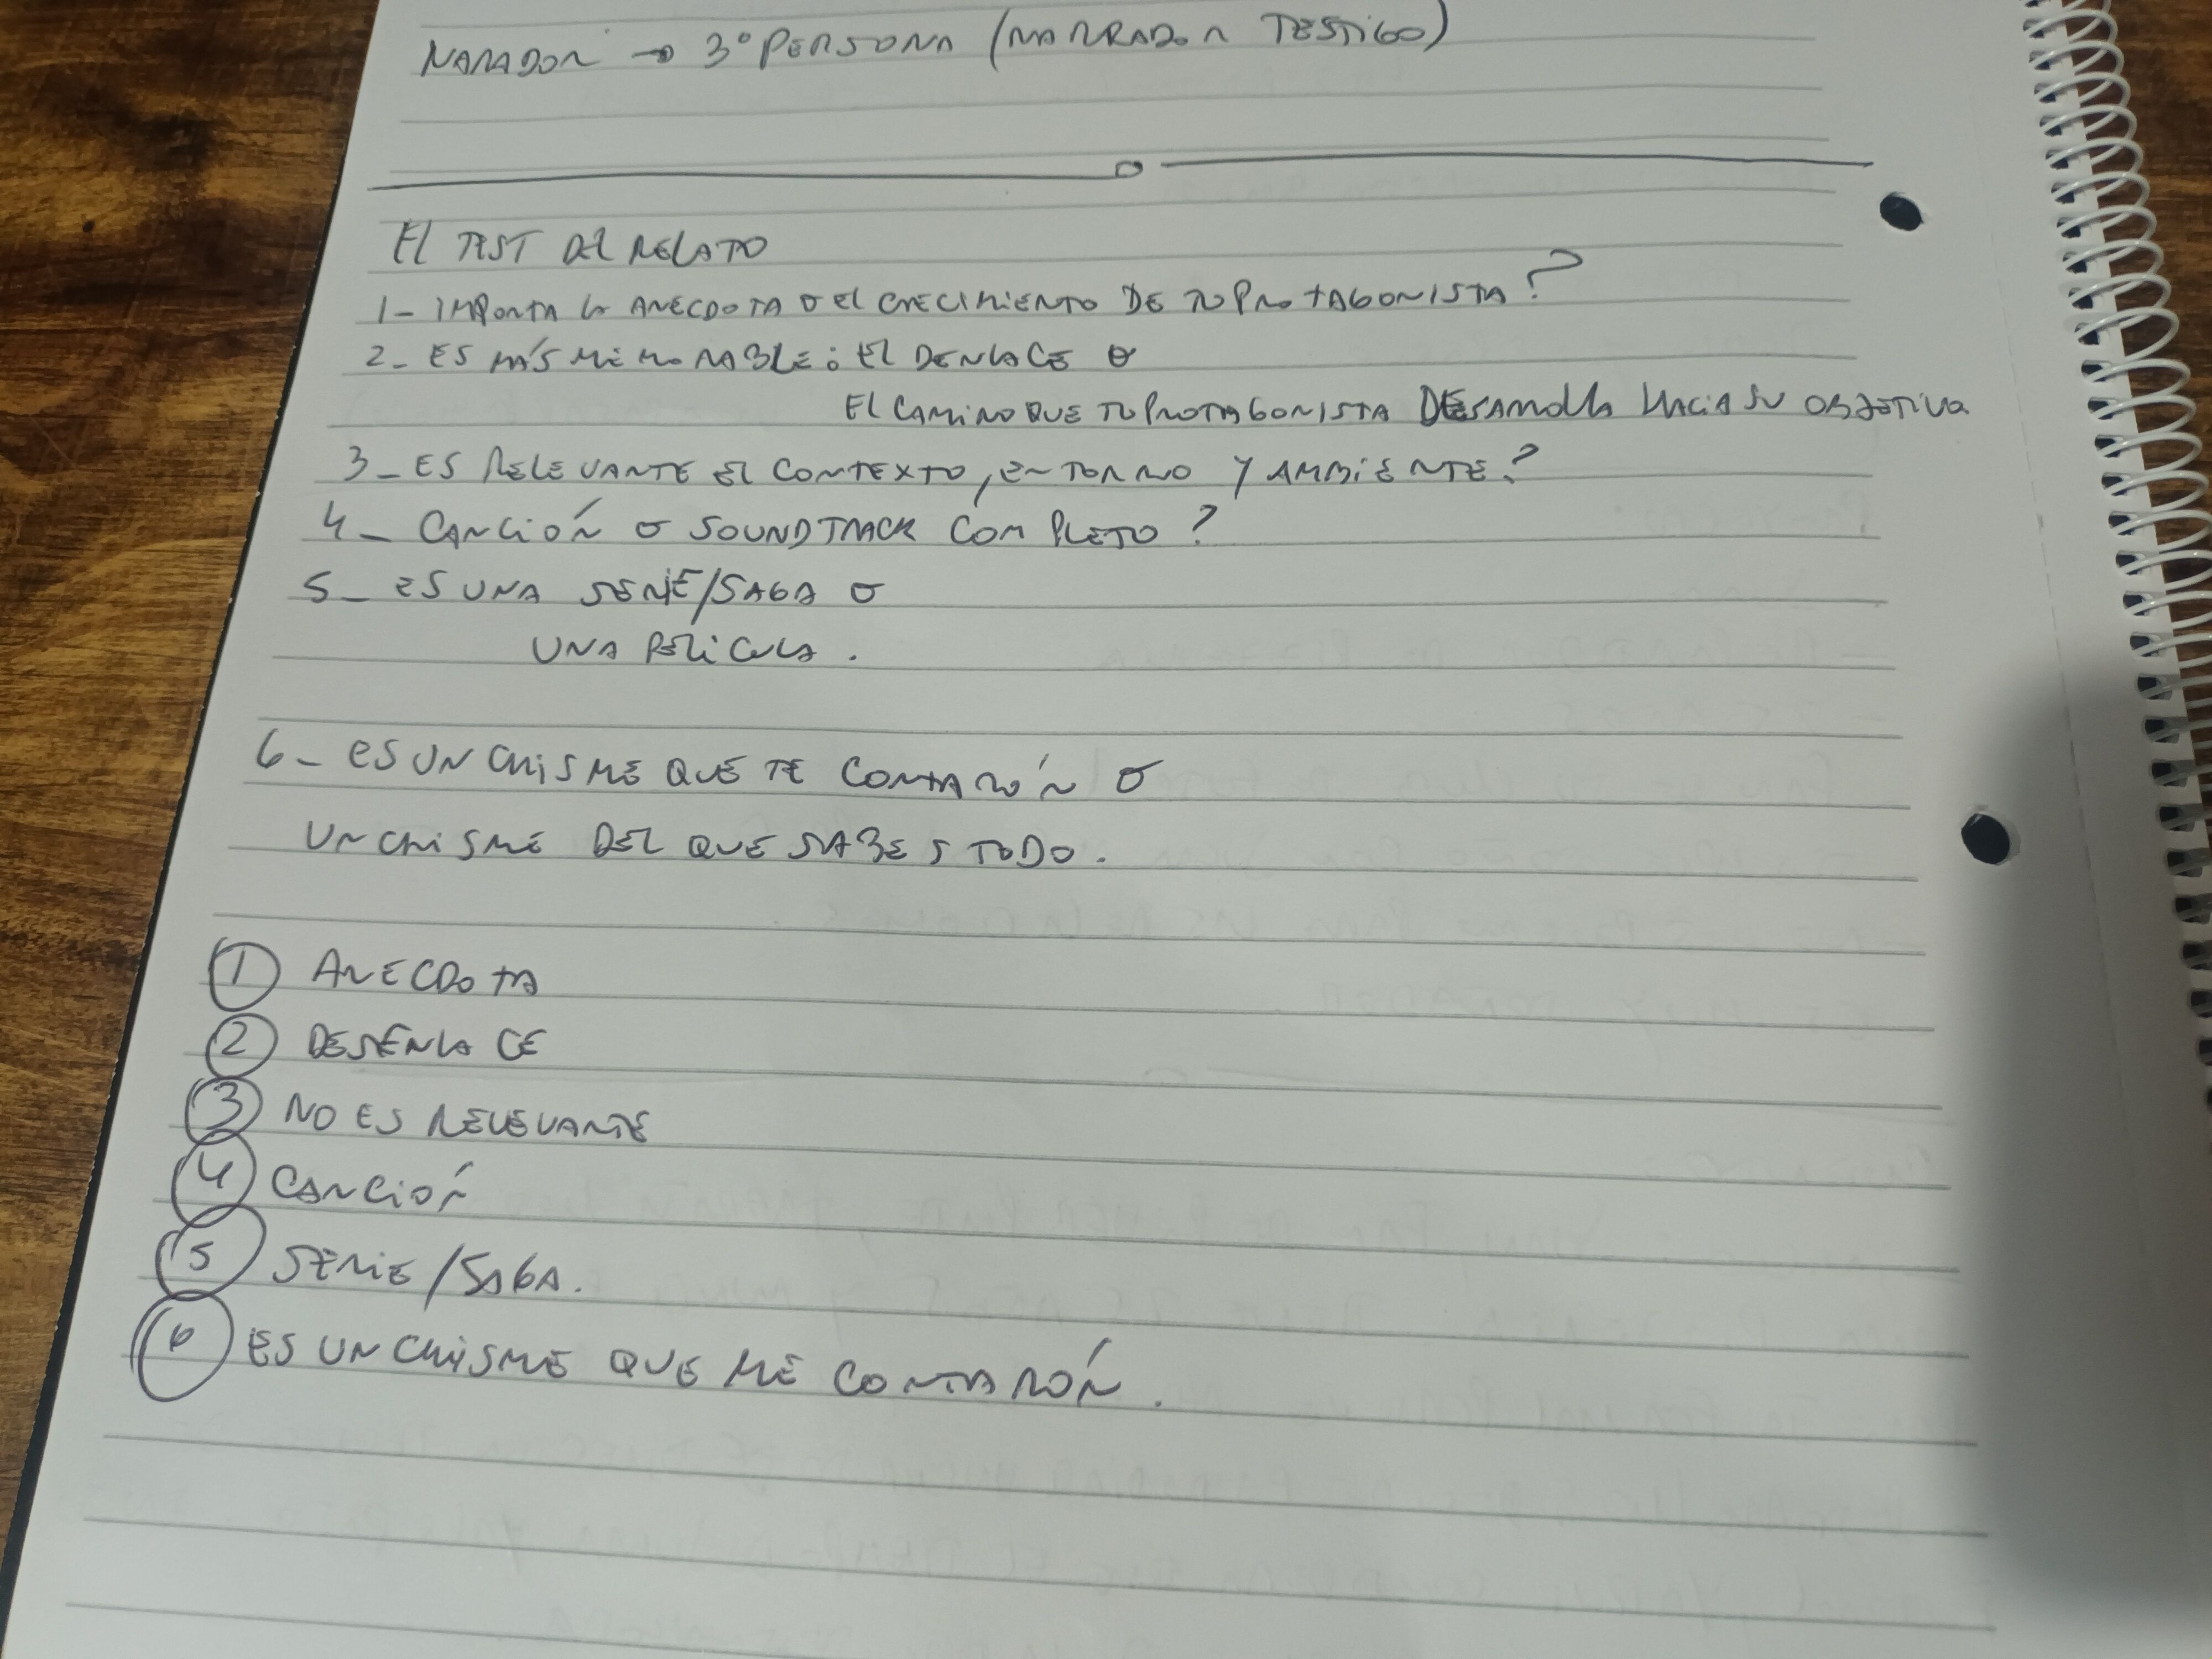 NARADOR → 3º PERSONA (NARRADOR TESTIGO)
El TEST DEL RELATO
1- IMPORTA LA ANECDOTA O EL CRECIMIENTO DE TU PROTAGONISTA?
2- ES MÁS MEMORABLE: EL DENLACE O
EL CAMINO QUE TU PROTAGONISTA DESARROLLA HACIA SU OBJETIVO
3- ES RELEVANTE EL CONTEXTO, ENTORNO Y AMBIENTE?
4- CANCIÓN O SOUNDTRACK COMPLETO?
5- ES UNA SERIE/SAGA O
UNA PELICULA.
6- ES UN CHISME QUE TE CONTARÓN O
UN CHISME DEL QUE SABES TODO.
1 ANECDOTA
2 DESENLACE
3 NO ES RELEVANTE
4 CANCIÓN
5 SERIE/SAGA.
6 ES UN CHISME QUE ME CONTARÓN.